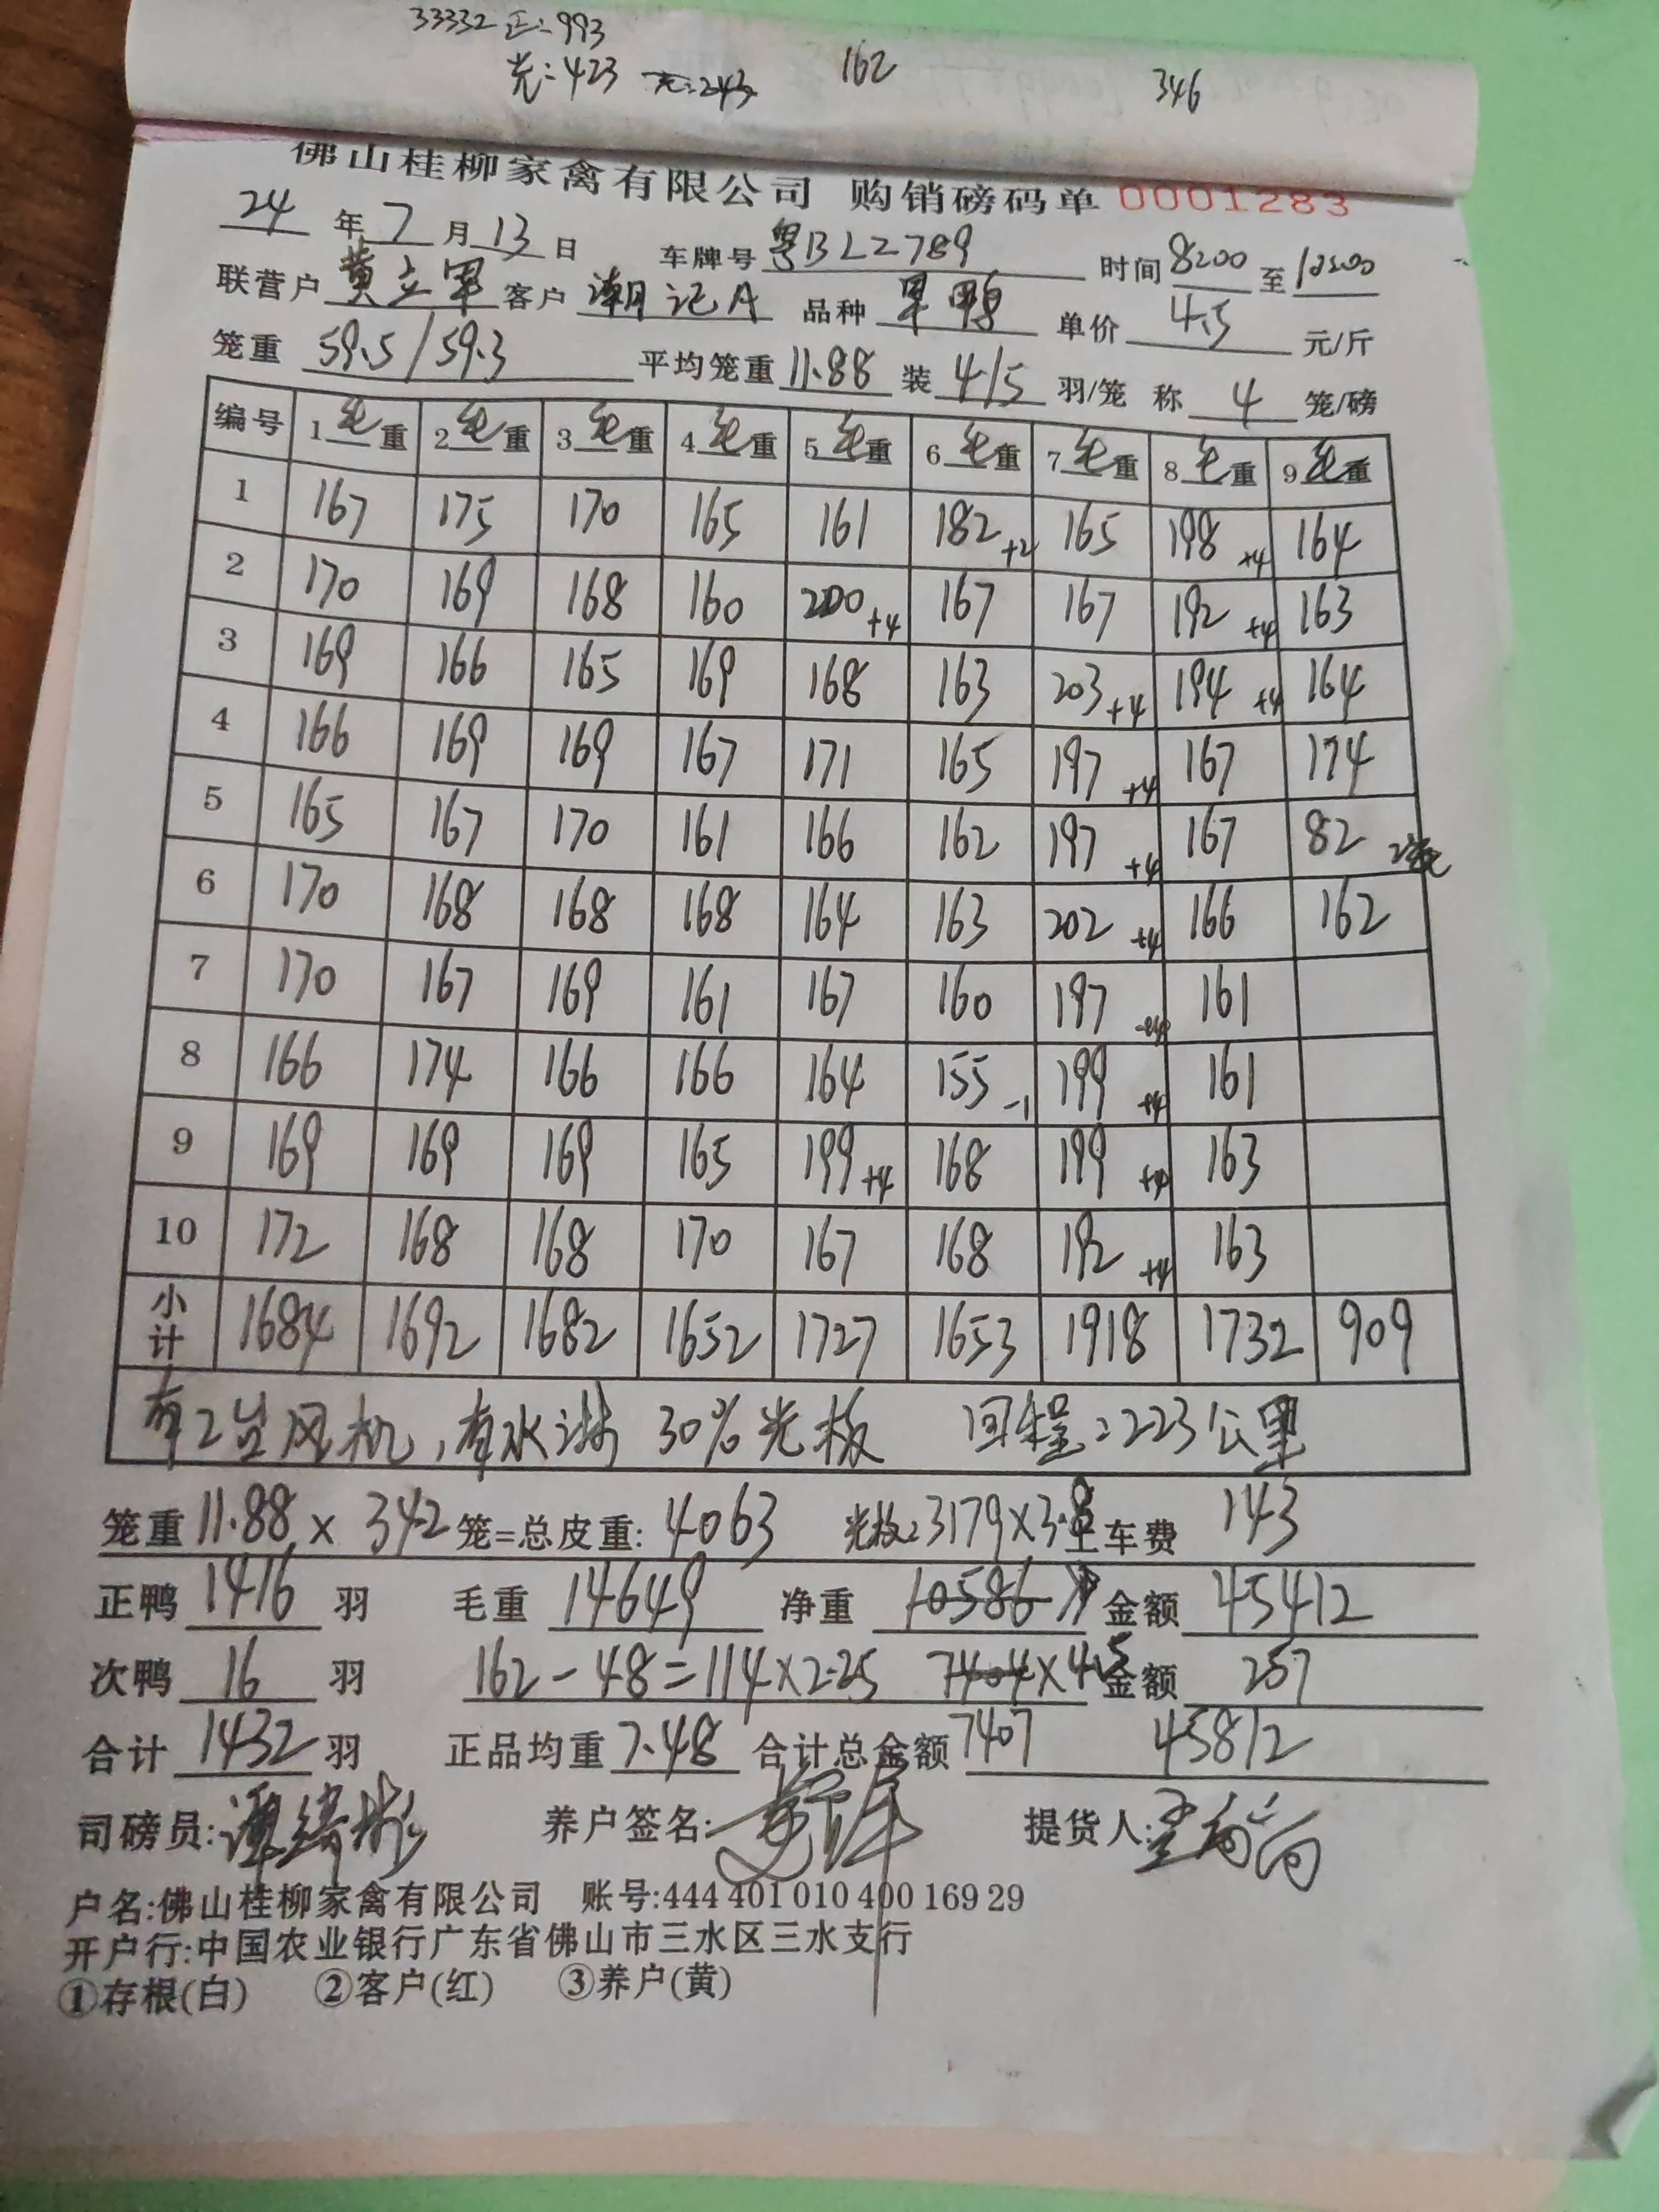 33332 正:993
光:423 光:243 162 346
佛山桂柳家禽有限公司 购销磅码单 0001283
24 年 7 月 13 日 车牌号 粤BLZ789 时间 8:00 至
联营户 黄立军 客户 潮记A 品种 单价 4.5 元/斤
笼重 59.5/59.3 平均笼重 11.88 装 4/5 羽/笼 称 4 笼/磅
编号 1毛重 2毛重 3毛重 4毛重 5毛重 6毛重 7毛重 8毛重 9毛重
1 167 175 170 165 161 182 +2 165 198 +4 164
2 170 169 168 160 200 +4 167 167 192 +4 163
3 169 166 165 169 168 163 203 +4 194 +4 164
4 166 169 169 167 171 165 197 +4 167 174
5 165 167 170 161 166 162 197 +4 167 82 2笼
6 170 168 168 168 164 163 202 +4 166 162
7 170 167 169 161 167 160 197 +4 161
8 166 174 166 166 164 155 -1 199 +4 161
9 169 169 169 165 199 +4 168 199 +4 163
10 172 168 168 170 167 168 192 +4 163
小计 1684 1692 1682 1652 1727 1653 1918 1732 909
有2台风机,有水淋 30%光板 回程:223公里
笼重 11.88 × 342 笼=总皮重: 4063 光板:3179×3.8 上车费 143
正鸭 1416 羽 毛重 14649 净重 10586 金额 45412
次鸭 16 羽 162-48=114×2.25 7404×4.5 金额 257
合计 1432 羽 正品均重 7.48 合计总金额 7407 45812
司磅员: 养户签名: 提货人:
户名:佛山桂柳家禽有限公司 账号:444 401 010 400 169 29
开户行:中国农业银行广东省佛山市三水区三水支行
①存根(白) ②客户(红) ③养户(黄)